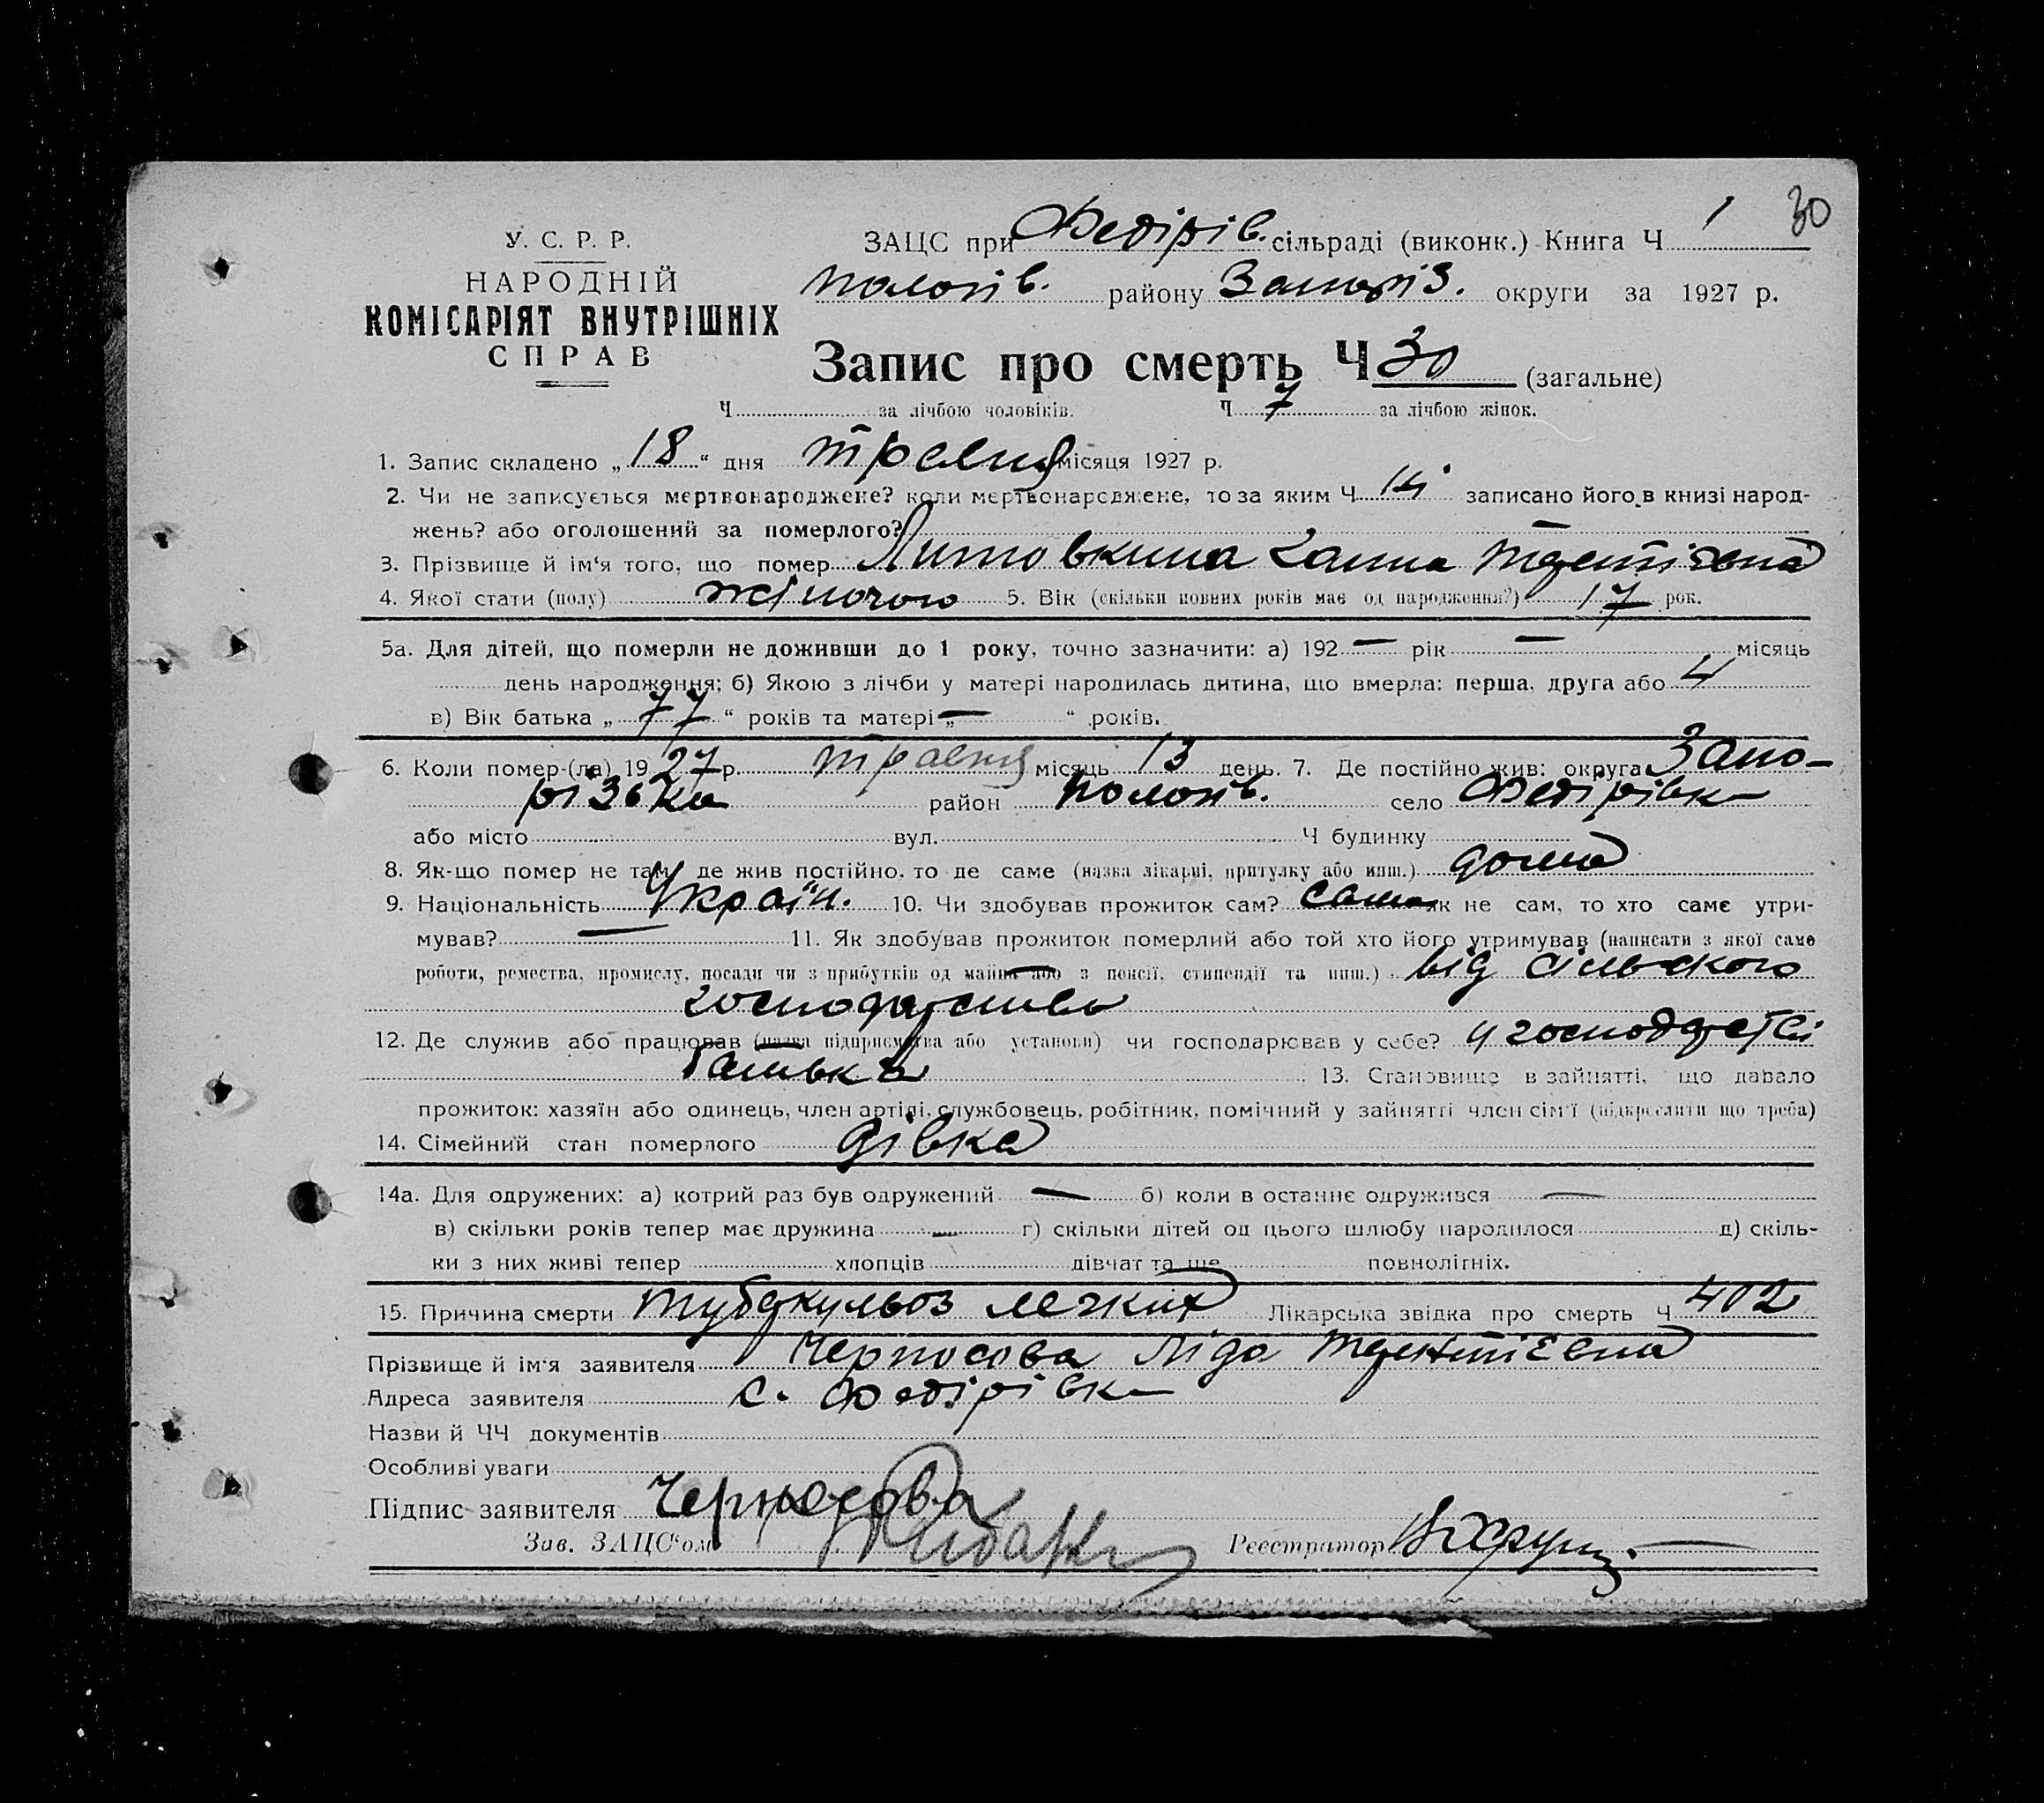 1 30
У. С. Р. Р.
НАРОДНІЙ
КОМІСАРІЯТ ВНУТРІШНІХ
СПРАВ
ЗАЦС при Федірів. сільраді (виконк.) Книга Ч
Пологів. району Запоріз. округи за 1927 р.
Запис про смерть Ч 30 (загальне)
Ч за лічбою чоловіків. Ч 7 за лічбою жінок.
1. Запис складено „18“ дня травня місяця 1927 р.
2. Чи не записується мертвонароджене? коли мертвонароджене, то за яким Ч записано його в книзі народ-
жень? або оголошений за померлого? —
3. Прізвище й ім‘я того, що помер Литовкина Ганна
4. Якої стати (полу) жіночою 5. Вік (скільки повних років має од народження?) 17 рок.
5а. Для дітей, що померли не доживши до 1 року, точно зазначити: а) 192 — рік — місяць
день народження; б) Якою з лічби у матері народилась дитина, що вмерла: перша, друга або 4
в) Вік батька „77“ років та матері „—“ років.
6. Коли помер-(ла) 1927 р. травня місяць 13 день. 7. Де постійно жив: округа Запо-
різька район Пологів. село Федірівк
або місто вул. Ч будинку
8. Як-що помер не там, де жив постійно, то де саме (назва лікарні, притулку або инш.) дома
9. Національність Україн. 10. Чи здобував прожиток сам? сама як не сам, то хто саме утри-
мував? — 11. Як здобував прожиток померлий або той хто його утримував (написати з якої саме
роботи, ремества, промислу, посади чи з прибутків од майна або з пенсії, стипендії та инш.) від сільского
господарства
12. Де служив або працював (назва підприємства або установи) чи господарював у себе? у господарстві
батька 13. Становище в зайнятті, що давало
прожиток: хазяїн або одинець, член артілі, службовець, робітник, помічний у зайнятті член сім‘ї (підкреслити що треба)
14. Сімейний стан померлого дівка
14а. Для одружених: а) котрий раз був одружений — б) коли в останнє одружився —
в) скільки років тепер має дружина — г) скільки дітей од цього шлюбу народилося д) скіль-
ки з них живі тепер хлопців дівчат та ще повнолітніх.
15. Причина смерти туберкульоз легких Лікарська звідка про смерть Ч 402
Прізвище й ім‘я заявителя Черносова Ліда
Адреса заявителя с. Федірівк
Назви й ЧЧ документів
Особливі уваги
Підпис заявителя Черносова
Зав. ЗАЦС‘ом Реєстратор